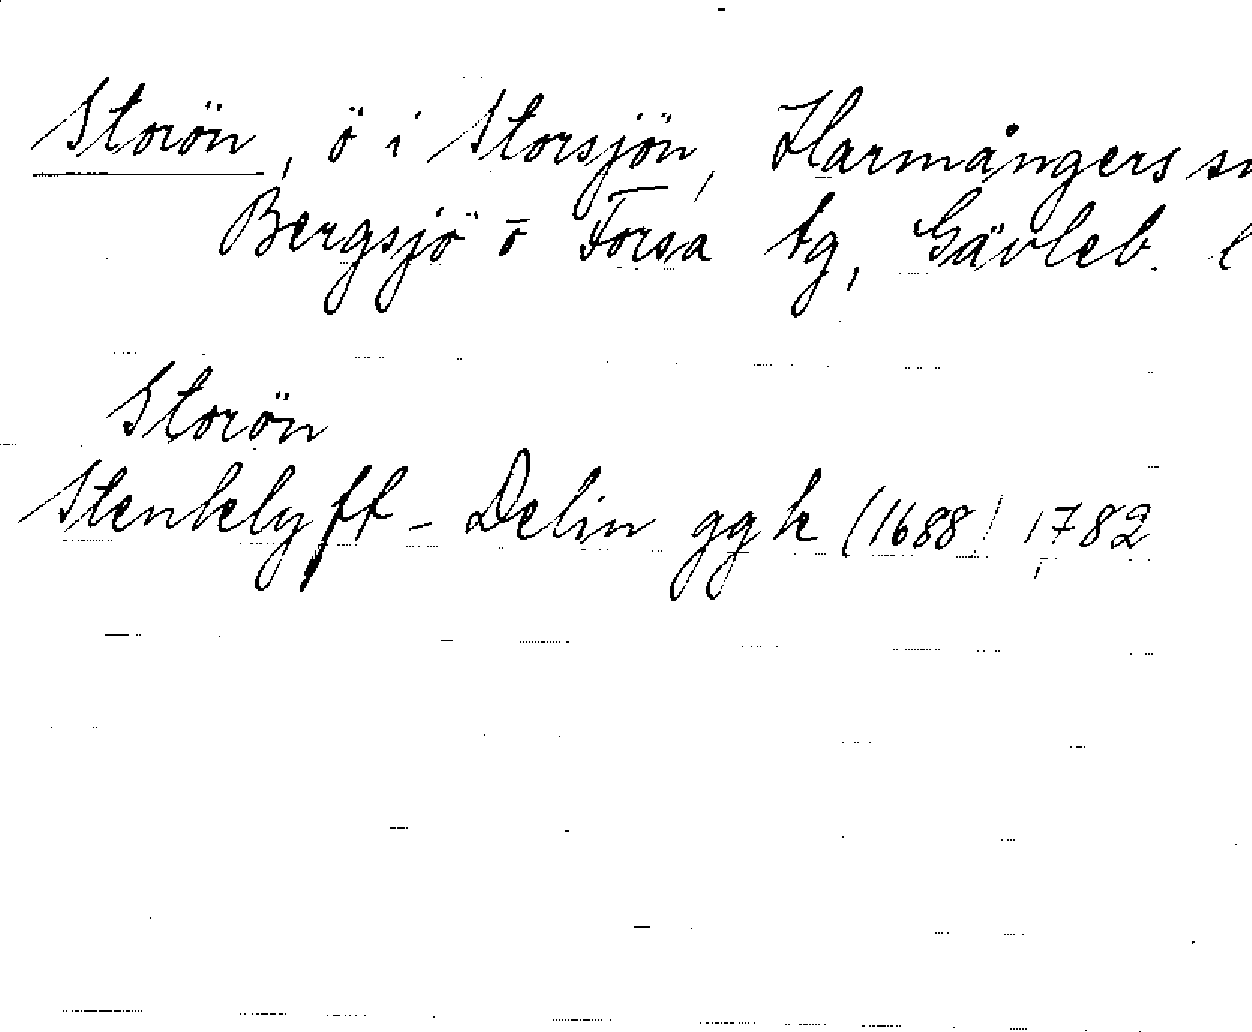 Storön, ö i Storsjön, Harmångers sn
Bergsjö o Forsa tg, Gävleb. l
Storön
Stenklyft - Delin ggk (1688) 1782